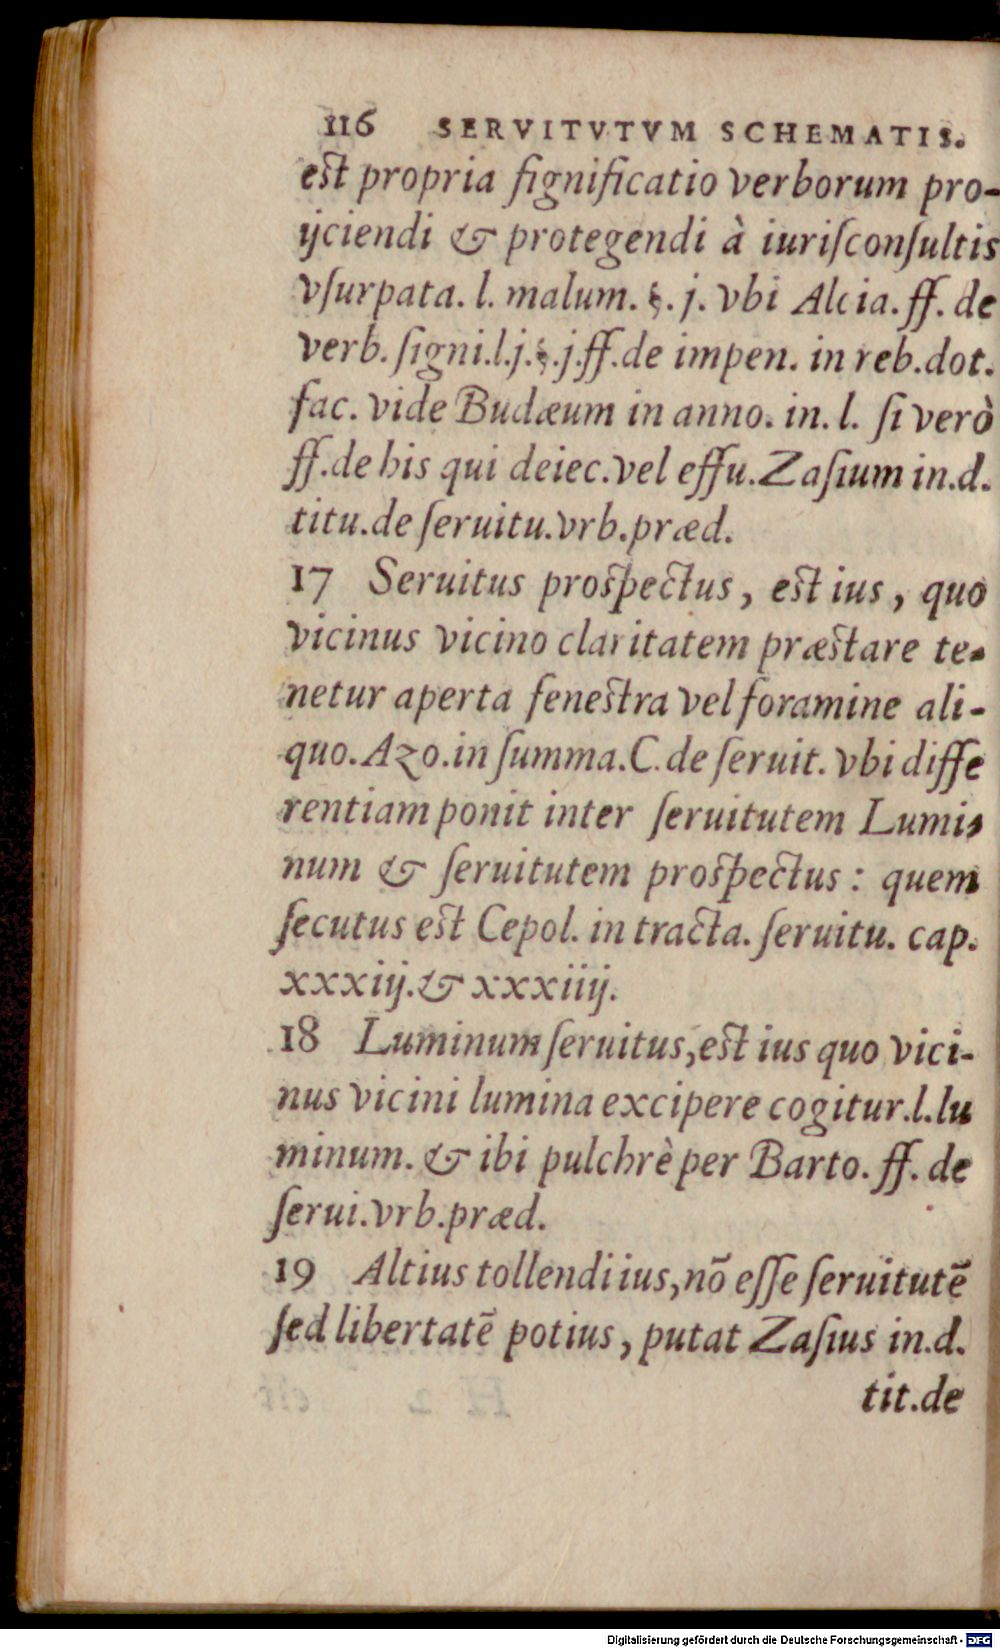 116 SERVITVTVM SCHEMATIS.
est propria ſignificatio verborum pro-
ijciendi & protegendi à iuriſconſultis
vſurpata. l. malum. §. j. vbi Alcia. ff. de
verb. ſigni.l.j.§.j.ff.de impen. in reb.dot.
fac. vide Budæum in anno. in. l. ſi verò
ff.de his qui deiec.vel effu. Zaſium in.d.
titu.de ſeruitu.vrb.præd.
17 Seruitus prospectus, est ius, quo
vicinus vicino claritatem præstare te-
netur aperta fenestra vel foramine ali-
quo. Azo.in ſumma.C.de ſeruit. vbi diffe
rentiam ponit inter ſeruitutem Lumi-
num & ſeruitutem prospectus : quem
ſecutus est Cepol. in tracta. ſeruitu. cap.
xxxiij.& xxxiiij.
18 Luminum ſeruitus, est ius quo vici-
nus vicini lumina excipere cogitur.l.lu
minum. & ibi pulchrè per Barto. ff. de
ſerui.vrb.præd.
19 Altius tollendi ius, nō eſſe ſeruitutē
ſed libertatē potius, putat Zaſius in.d.
tit.de
Digitalisierung gefördert durch die Deutsche Forschungsgemeinschaft - DFG